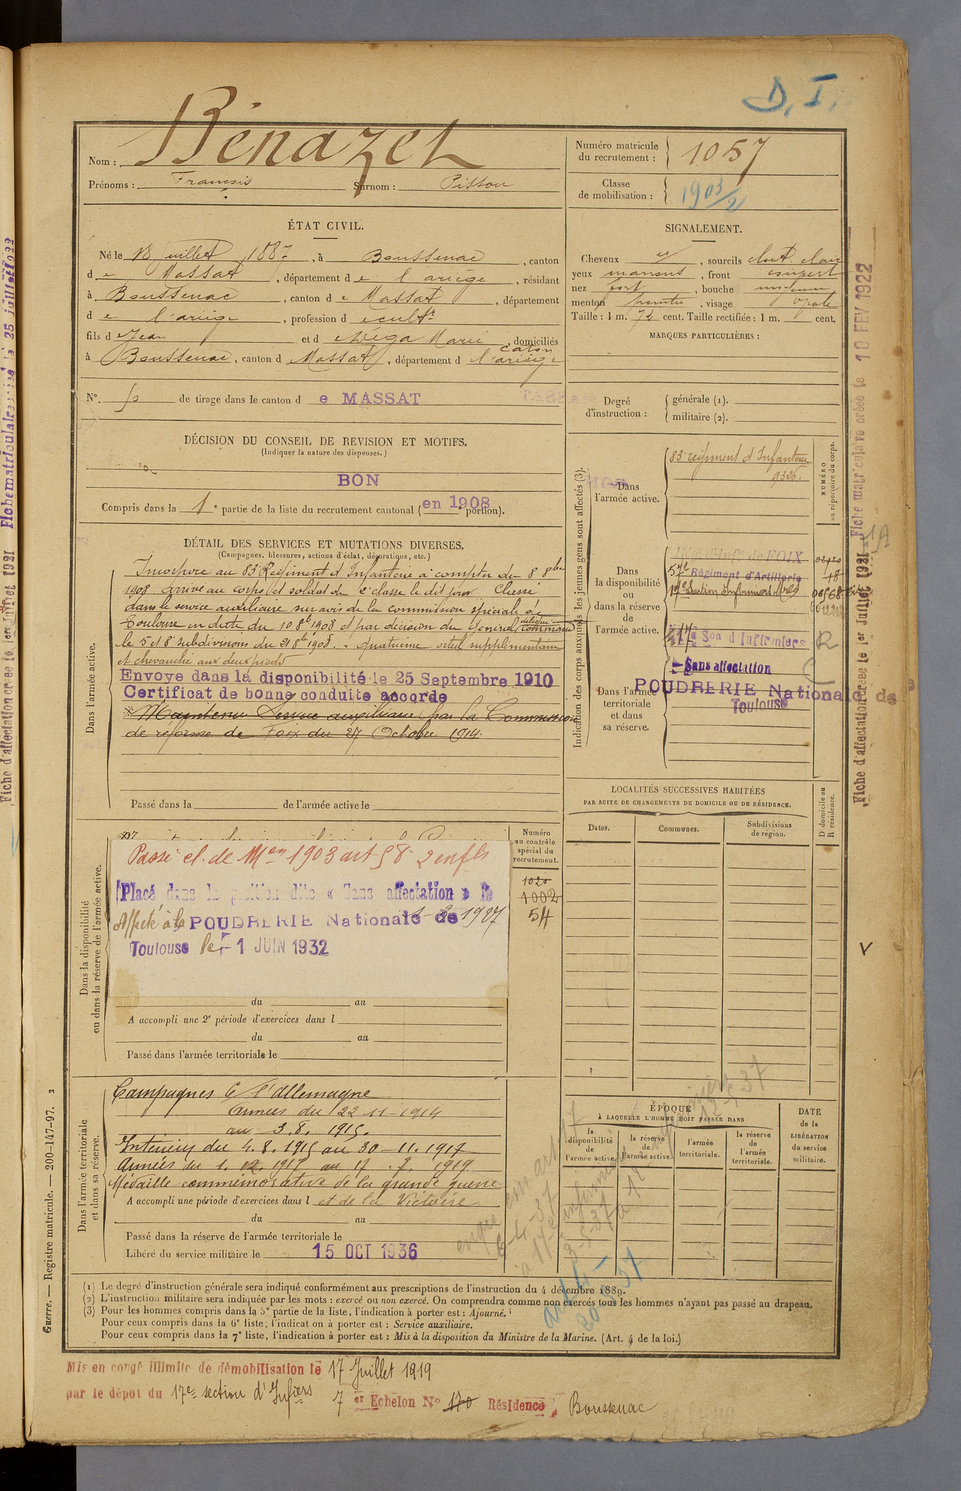 D. I.
Nom : Bénazet
Prénoms : François Surnom : Pistou
Numéro matricule du recrutement : 1057
Classe de mobilisation : 1903/2
ÉTAT CIVIL.
Né le 13 Juillet 1887, à Boussenac, canton
de Massat, département de l'ariège, résidant
à Boussenac, canton de Massat, département
de l'ariège, profession de cultr
fils de Jean et de Marie, domiciliés
à Boussenac, canton de Massat, département de l'ariège
SIGNALEMENT.
Cheveux , sourcils chat clair
yeux marrons, front
nez fort, bouche moyenne
menton pointu, visage ovale
Taille : 1 m. 72 cent. Taille rectifiée : 1 m. cent.
MARQUES PARTICULIÈRES :
N°. de tirage dans le canton de MASSAT
Degré d'instruction : générale (1).
militaire (2).
DÉCISION DU CONSEIL DE REVISION ET MOTIFS.
(Indiquer la nature des dispenses.)
BON
Compris dans la 1e partie de la liste du recrutement cantonal (en 1908 portion).
DÉTAIL DES SERVICES ET MUTATIONS DIVERSES.
(Campagnes, blessures, actions d'éclat, décorations, etc.)
Dans l'armée active.
Incorporé au 83e Régiment d'Infanterie à compter du 8 8bre
1908 arrivé au corps et soldat de 2e classe le dit jour Classé
dans le service auxiliaire sur avis de la commission spéciale de
Toulouse en date du 10 8bre 1908 et par décision du Général commandt
le 5e et 6e subdivisions du 21 8bre 1908. quatrième orteil supplémentaire
et chevauché aux deux pieds
Envoyé dans la disponibilité le 25 Septembre 1910
Certificat de bonne conduite accordé
Maintenu Service auxiliaire par la Commission
de réforme de Foix du 27 Octobre 1914.
Passé dans la de l'armée active le
Indication des corps auxquels les jeunes gens sont affectés (3).
NUMÉRO au répertoire du corps.
Dans l'armée active.
83e régiment d'Infanterie
9326.
Dans la disponibilité ou dans la réserve de l'armée active.
57e Régiment d'Artillerie
17e Section Infirmiers
17e Son d'Infirmiers
Sans affectation
Dans l'armée territoriale et dans sa réserve.
POUDRERIE Nationale de
Toulouse
LOCALITÉS SUCCESSIVES HABITÉES
PAR SUITE DE CHANGEMENTS DE DOMICILE OU DE RÉSIDENCE.
Dates. Communes. Subdivisions de région. D domicile ou R résidence.
Dans la disponibilité ou dans la réserve de l'armée active.
Numéro au contrôle spécial du recrutement.
1020
1002
54
Passé cl. de Men 1903 art 58 2 enfts
Placé dans la position dite « Sans affectation » le
1927
Affecté à la POUDRERIE Nationale de
Toulouse le 1 JUIN 1932
du au
A accompli une 2e période d'exercices dans l
du au
Passé dans l'armée territoriale le
Dans l'armée territoriale et dans sa réserve.
Campagnes C l'Allemagne
Armées du 22-11-1914
au 3.8.1915.
Intérieur du 4.8.1915 au 30-11-1917
Armées du 1.12.1917 au 17.7.1919
Médaille commémorative de la grande guerre
A accompli une période d'exercices dans l et de la Victoire
du au
Passé dans la réserve de l'armée territoriale le
Libéré du service militaire le 15 OCT 1936
ÉPOQUE
À LAQUELLE L'HOMME DOIT PASSER DANS
la disponibilité de l'armée active.
la réserve de l'armée active.
l'armée territoriale.
la réserve de l'armée territoriale.
DATE DE LA LIBÉRATION du service militaire.
(1) Le degré d'instruction générale sera indiqué conformément aux prescriptions de l'instruction du 4 décembre 1889.
(2) L'instruction militaire sera indiquée par les mots : exercé ou non exercé. On comprendra comme non exercés tous les hommes n'ayant pas passé au drapeau.
(3) Pour les hommes compris dans la 5e partie de la liste, l'indication à porter est : Ajourné.
Pour ceux compris dans la 6e liste, l'indication à porter est : Service auxiliaire.
Pour ceux compris dans la 7e liste, l'indication à porter est : Mis à la disposition du Ministre de la Marine. (Art. 4 de la loi.)
Guerre. — Registre matricule. — 200-147-97. 2
Mis en congé illimité de démobilisation le 17 Juillet 1919
par le dépôt du 17e section d'Infiers 7 er Echelon N° 170 Résidence, Boussenac
Fiche matriculaire créée le 10 FEV 1922
Fiche d'affectation créée le 1er Juillet 1921